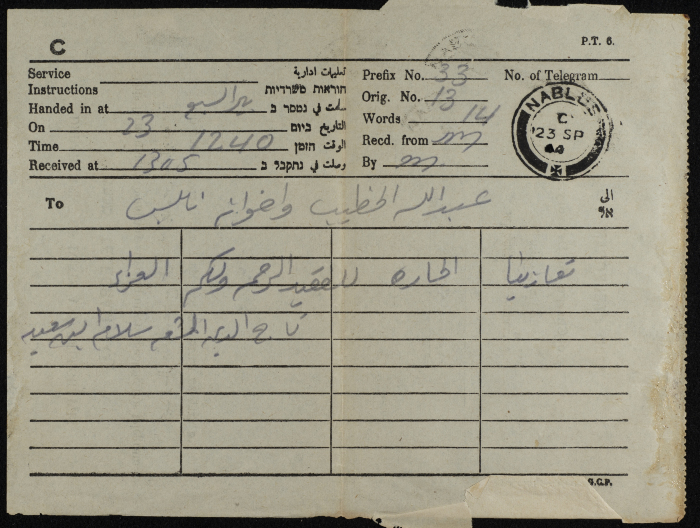 C
P.T. 6.
Service
Instructions
تعليمات ادارية
הוראות משרדיות
Handed in at بير السبع سلمت في נמסר ב
On 23 التاريخ ביום
Time 1240 الوقت הזמן
Received at 1305 وصلت في נתקבל ב
Prefix No. 33
No. of Telegram
Orig. No. 13
Words 14
Recd. from m
By m
NABLUS
C
23 SP
44
To
عبد الله الخطيب واخوانه نابلس
الى
אל
تعازينا الحاره للفقيد الرحمه ولكم العزاء
تاج الدين سلامه ابو سعيد
G.C.P.